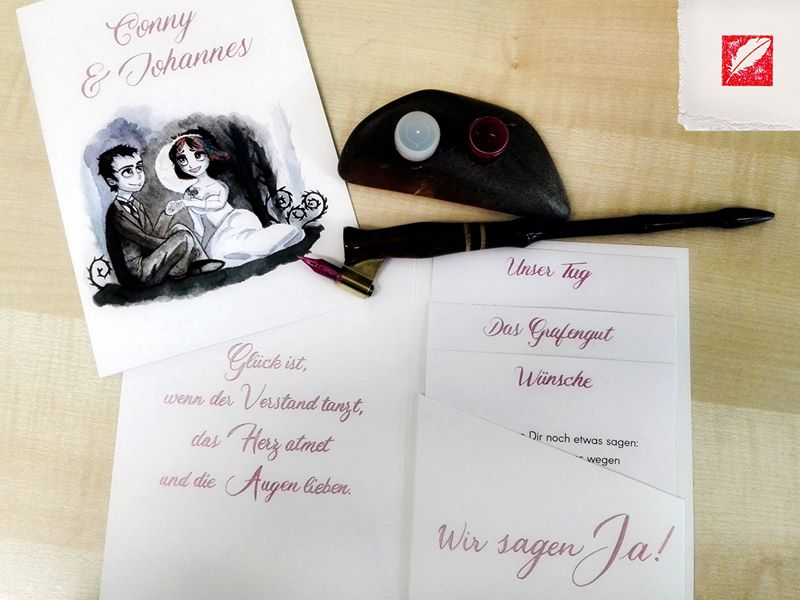 Conny
& Johannes
Unser Tag
Das Grafengut
Wünsche
Dir noch etwas sagen:
wegen
Glück ist,
wenn der Verstand tanzt,
das Herz atmet
und die Augen lieben.
Wir sagen Ja!